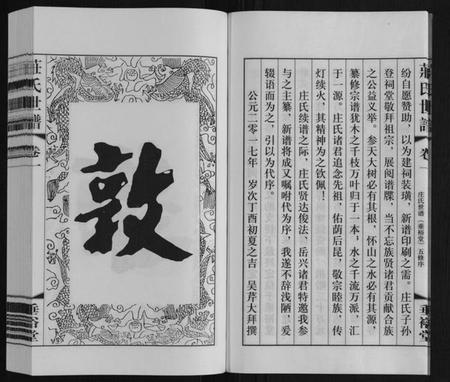 莊氏世譜
卷一
庄氏世谱（垂裕堂）五修序
垂裕堂
纷自愿赞助，以为建祠装璜，新谱印刷之需。庄氏子孙
登祠堂敬拜祖宗，展阅谱牒，当不忘族贤诸君贡献合族
之公益义举。参天大树必有其根，怀山之水必有其源，
纂修宗谱犹木之千枝万叶归于一本，水之千流万派，汇
于一源。庄氏诸君追念先祖，佑荫后昆，敬宗睦族，传
灯续火，其精神为之钦佩！
庄氏续谱之际，庄氏贤达俊法、岳兴诸君特邀我参
与之主纂，新谱将成又嘱咐代为序，我遂不辞浅陋，爰
辍语而为之，引以为代序。
公元二零一七年　岁次丁酉初夏之吉　吴芹大拜撰
敦
莊氏世譜
卷一
垂裕堂